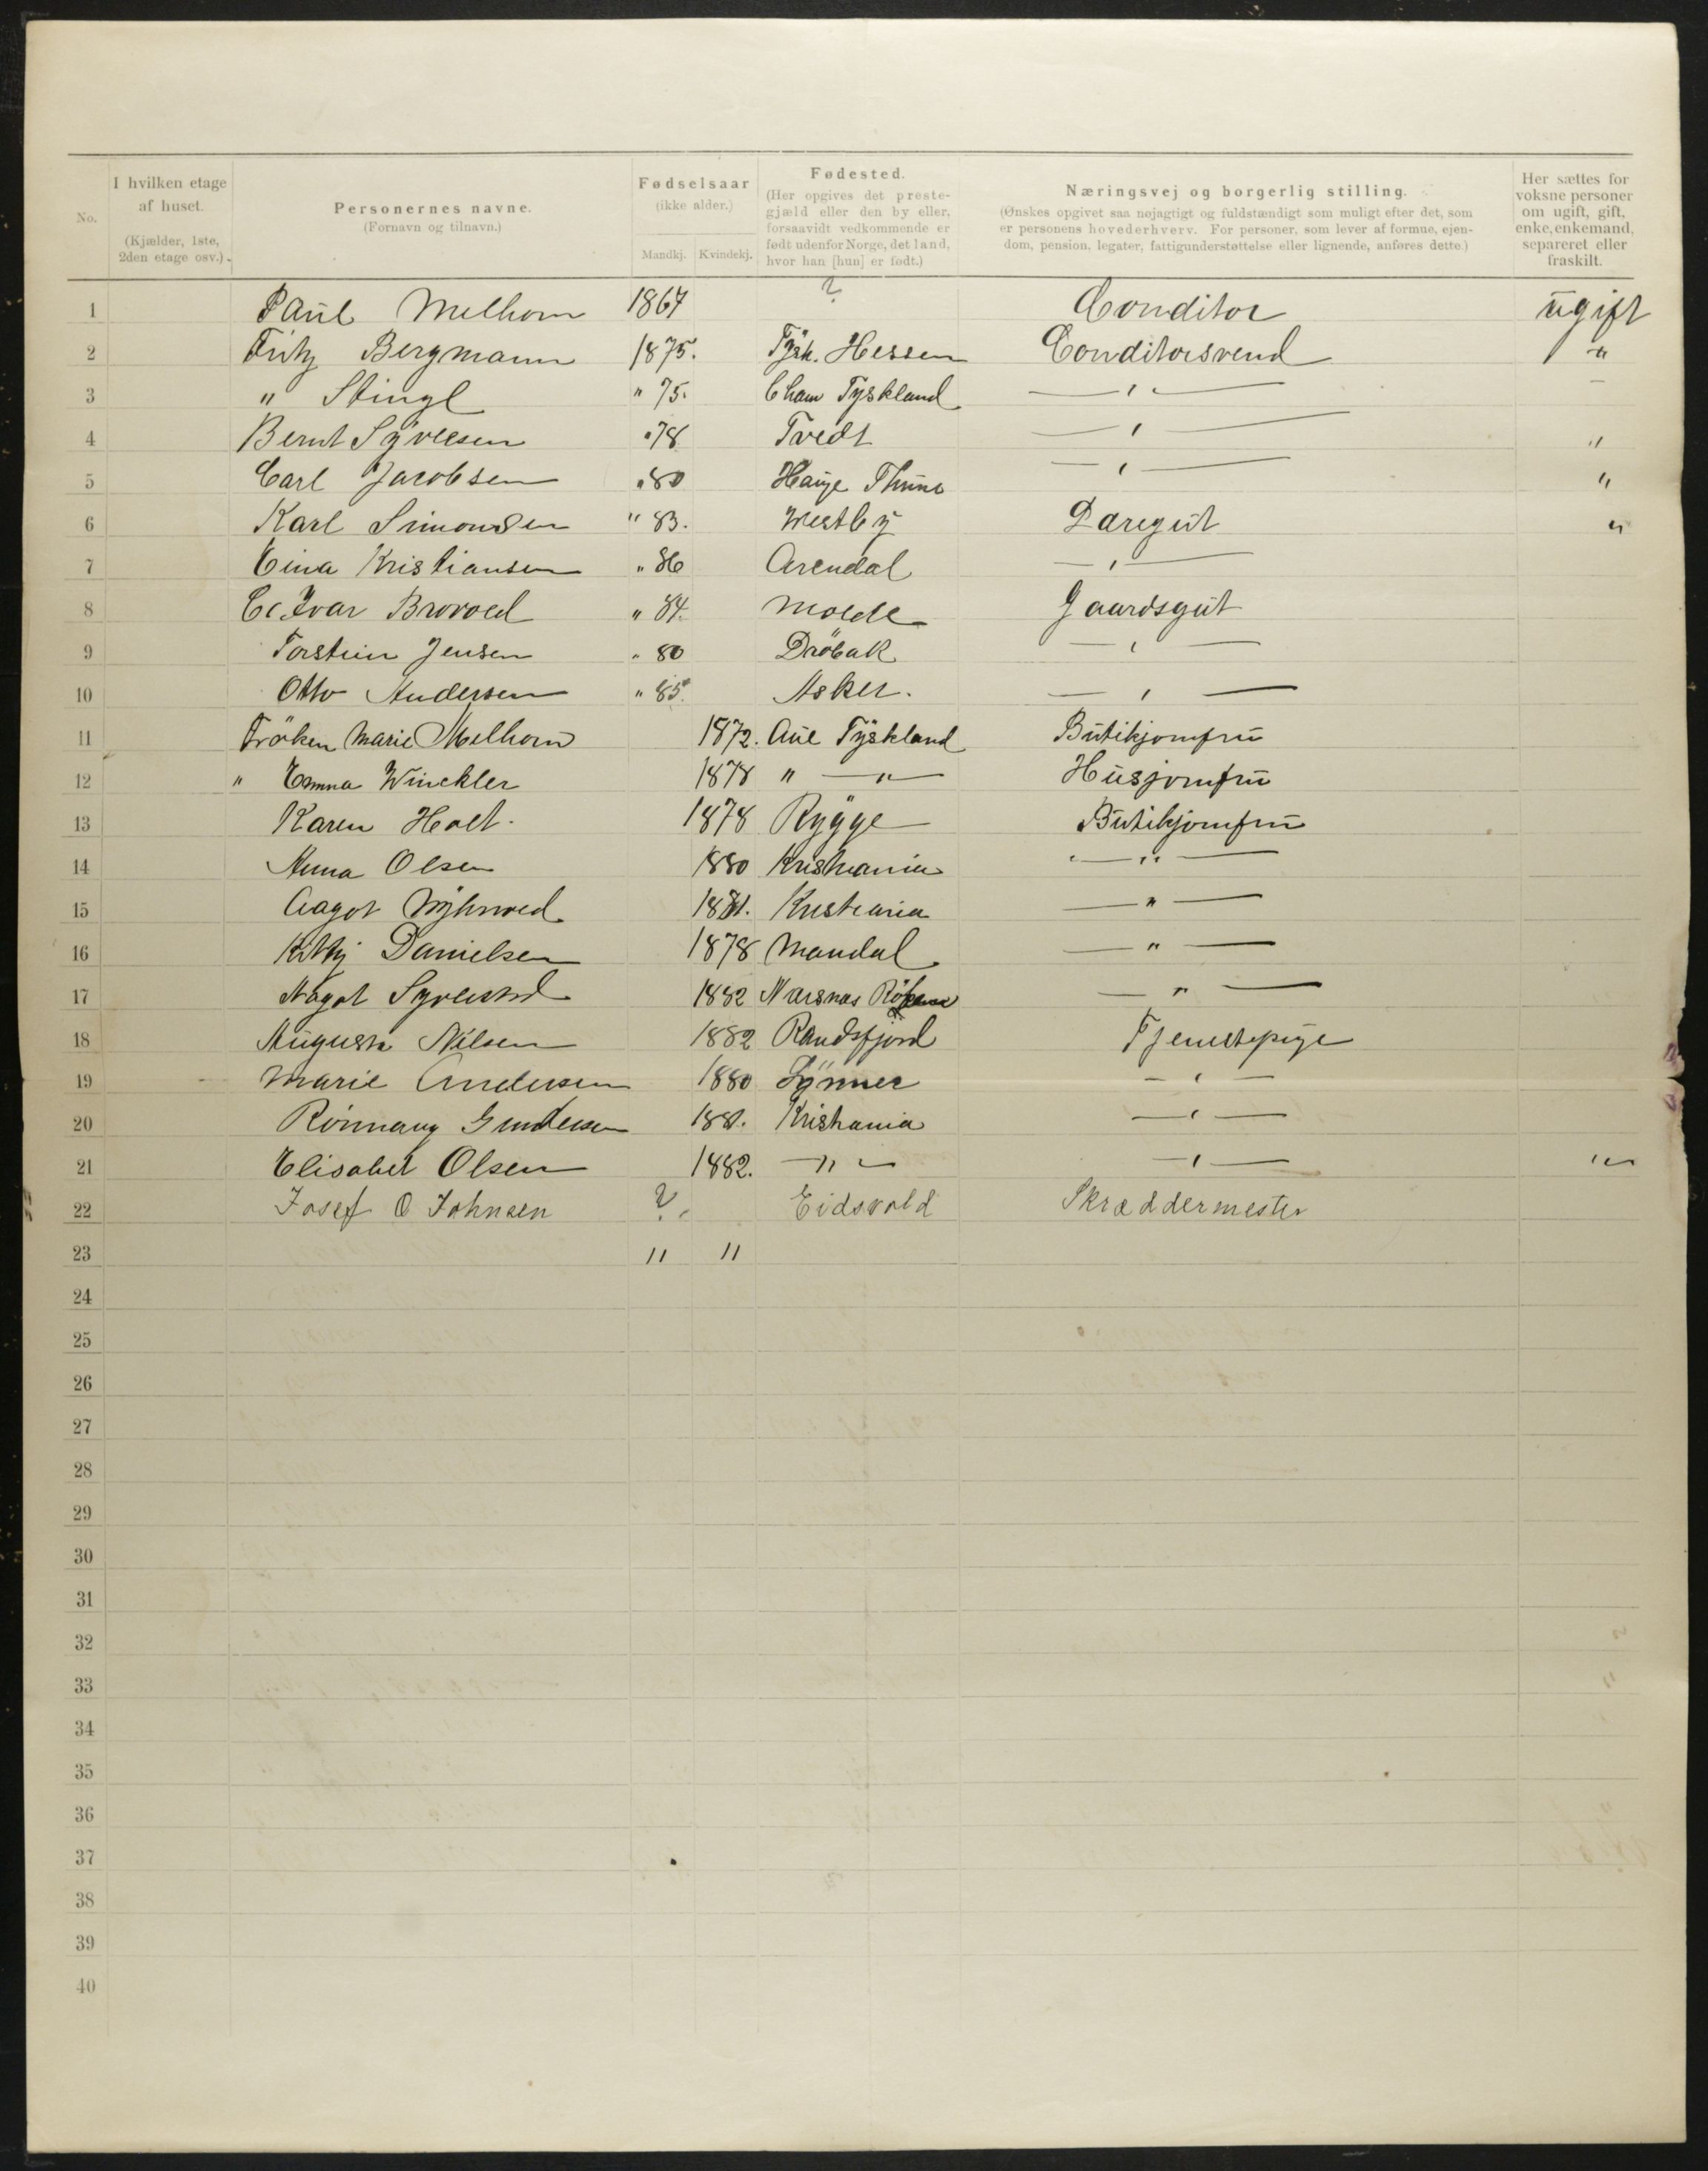 No.
I hvilken etage af huset. (Kjælder, 1ste, 2den etage osv.)
Personernes navne. (Fornavn og tilnavn.)
Fødselsaar (ikke alder.) Mandkj. Kvindekj.
Fødested. (Her opgives det prestegjæld eller den by eller, forsaavidt vedkommende er født udenfor Norge, det land, hvor han [hun] er født.)
Næringsvej og borgerlig stilling. (Ønskes opgivet saa nøjagtigt og fuldstændigt som muligt efter det, som er personens hovederhverv. For personer, som lever af formue, ejendom, pension, legater, fattigunderstøttelse eller lignende, anføres dette.)
Her sættes for voksne personer om ugift, gift, enke, enkemand, separeret eller fraskilt.
1 Paul Melhorn 1867 ? Conditor ugift
2 Fritz Bergmann 1875. Tysk. Hessen Conditorsvend "
3 " Stingl " 75. Cham Tyskland — " — –
4 Bernt " 78 Tvedt — " — "
5 Carl Jacobsen " 80 — " — "
6 Karl Simonsen " 83. Westby "
7 Kristiansen " 86 Arendal — " —
8 Ivar Brovold " 84. Molde Gaardsgut
9 Torstein Jensen " 80 Dröbak — " —
10 Otto Andersen " 85. Asker. — " —
11 Fröken Marie Melhorn 1872. Aue Tyskland Butikjomfru
12 " Emma Winckler 1878 " — " — Husjomfru
13 Karen Holt. 1878 Rygge Butikjomfru
14 Anna Olsen 1880 Kristiania — " —
15 Aagot 1881. Kristiania — " —
16 Kitty Danielsen 1878 Mandal — " —
17 Aagot 1882 Nærsnes Röken — " —
18 Augusta Nilsen 1882 Randsfjord Tjenestepige
19 Marie Andersen 1880 — " —
20 Rönnaug Gundersen 1881. Kristiania — " —
21 Elisabet Olsen 1882. — " — — " — "
22 Josef O Johnsen ? Eidsvold Skræddermester
23 " "
24
25
26
27
28
29
30
31
32
33
34
35
36
37
38
39
40